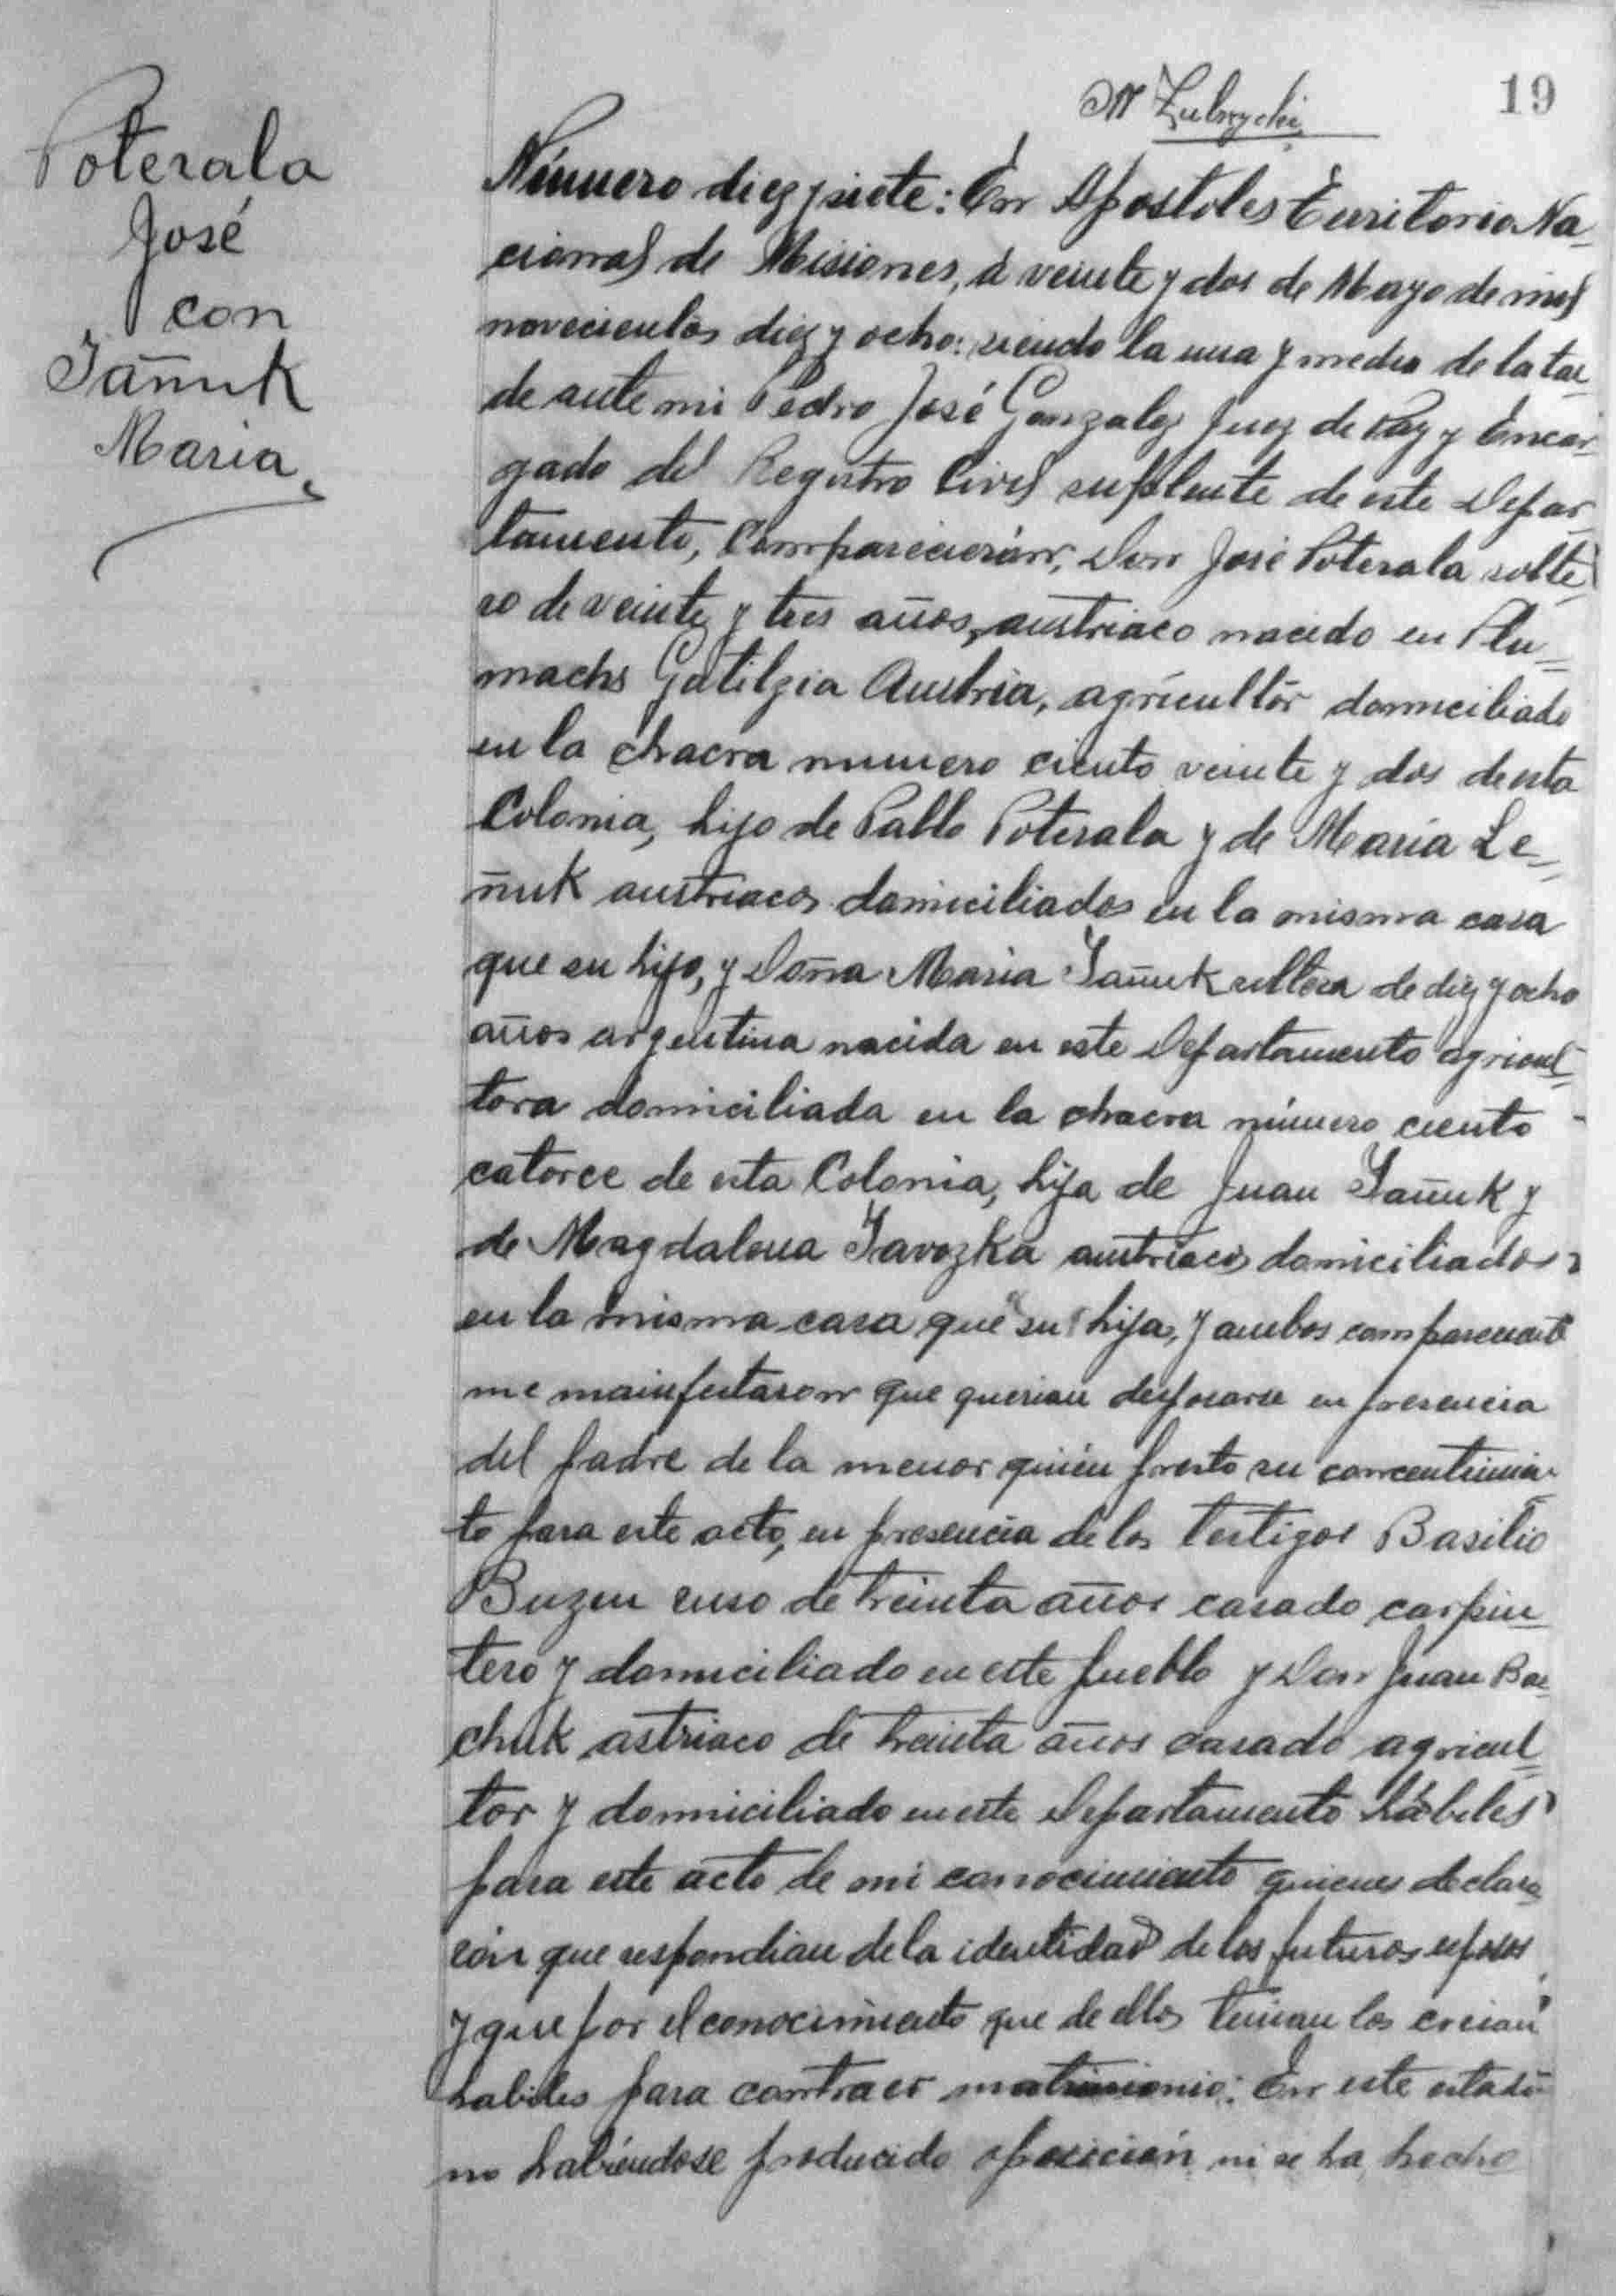 19
M Zubrzycki
Poterala
José
con
Tañuk
Maria
Número diez y siete: En Apostoles Territorio Na-
cional de Misiones, á veinte y dos de Mayo de mil
novecientos diez y ocho: siendo la una y media de la tar
de ante mi Pedro José Gonzalez Juez de Paz y Encar-
gado del Registro Civil suplente de este Depar-
tamento, Comparecierón, Don José Poterala solte
ro de veinte y tres años, austriaco nacido en Plu=
machs Galilzia Austria, agrícultór domiciliado
en la chacra numero ciento veinte y dos de esta
Colonia, hijo de Pablo Poterala y de María Le=
ñuk austriacos domiciliados en la misma casa
que su hijo, y Doña Maria Tañuk soltera de diez y ocho
años argentina nacida en este Departamento agricul=
tora domiciliada en la chacra número ciento
catorce de esta Colonia, hija de Juan Tañuk y
de Magdalena Tavozka austriacos domiciliados
en la misma casa que su hija, y ambos comparecient
me mainfestaron que querian desposarse en presencia
del padre de la menor quién presto su concentimien
to para este acto, en presencia de los testigos Basilio
Buzen ruso de treinta años casado carpin
tero y domiciliado en este pueblo y Don Juan
chuk astriaco de treinta años casado agricul
tor y domiciliado en este Departamento hábiles
para este acto de mi conocimiento quienes declara
rón que respondian de la identidad de los futuros esposos
y que por el conocimiento que de ellos tenian los creian
habiles para contraer matrimonio: En este estado
no habiéndose producido oposición ni se ha hecho